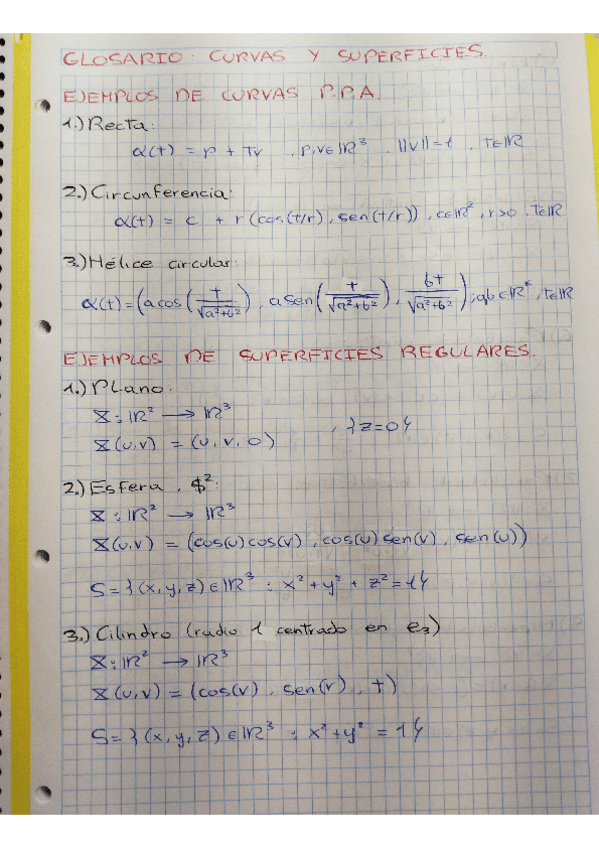 GLOSARIO: CURVAS Y SUPERFICIES.
EJEMPLOS DE CURVAS P.P.A.
1.) Recta:
α(t) = p + tv , p,v∈ℝ³ , ||v||=1 , t∈ℝ
2.) Circunferencia:
α(t) = c + r(cos(t/r), sen(t/r)), c∈ℝ², r>0, t∈ℝ
3.) Hélice circular:
α(t) = (a cos(t/√(a²+b²)), a sen(t/√(a²+b²)), bt/√(a²+b²)); a,b∈ℝ*, t∈ℝ
EJEMPLOS DE SUPERFICIES REGULARES.
1.) Plano:
X: ℝ² → ℝ³
X(u,v) = (u, v, 0) , {z=0}
2.) Esfera, $²:
X: ℝ² → ℝ³
X(u,v) = (cos(u)cos(v), cos(u)sen(v), sen(u))
S = {(x,y,z)∈ℝ³ : x²+y²+z²=1}
3.) Cilindro (radio 1 centrado en e₃)
X: ℝ² → ℝ³
X(u,v) = (cos(v), sen(v), t)
S = {(x,y,z)∈ℝ³ : x²+y²=1}